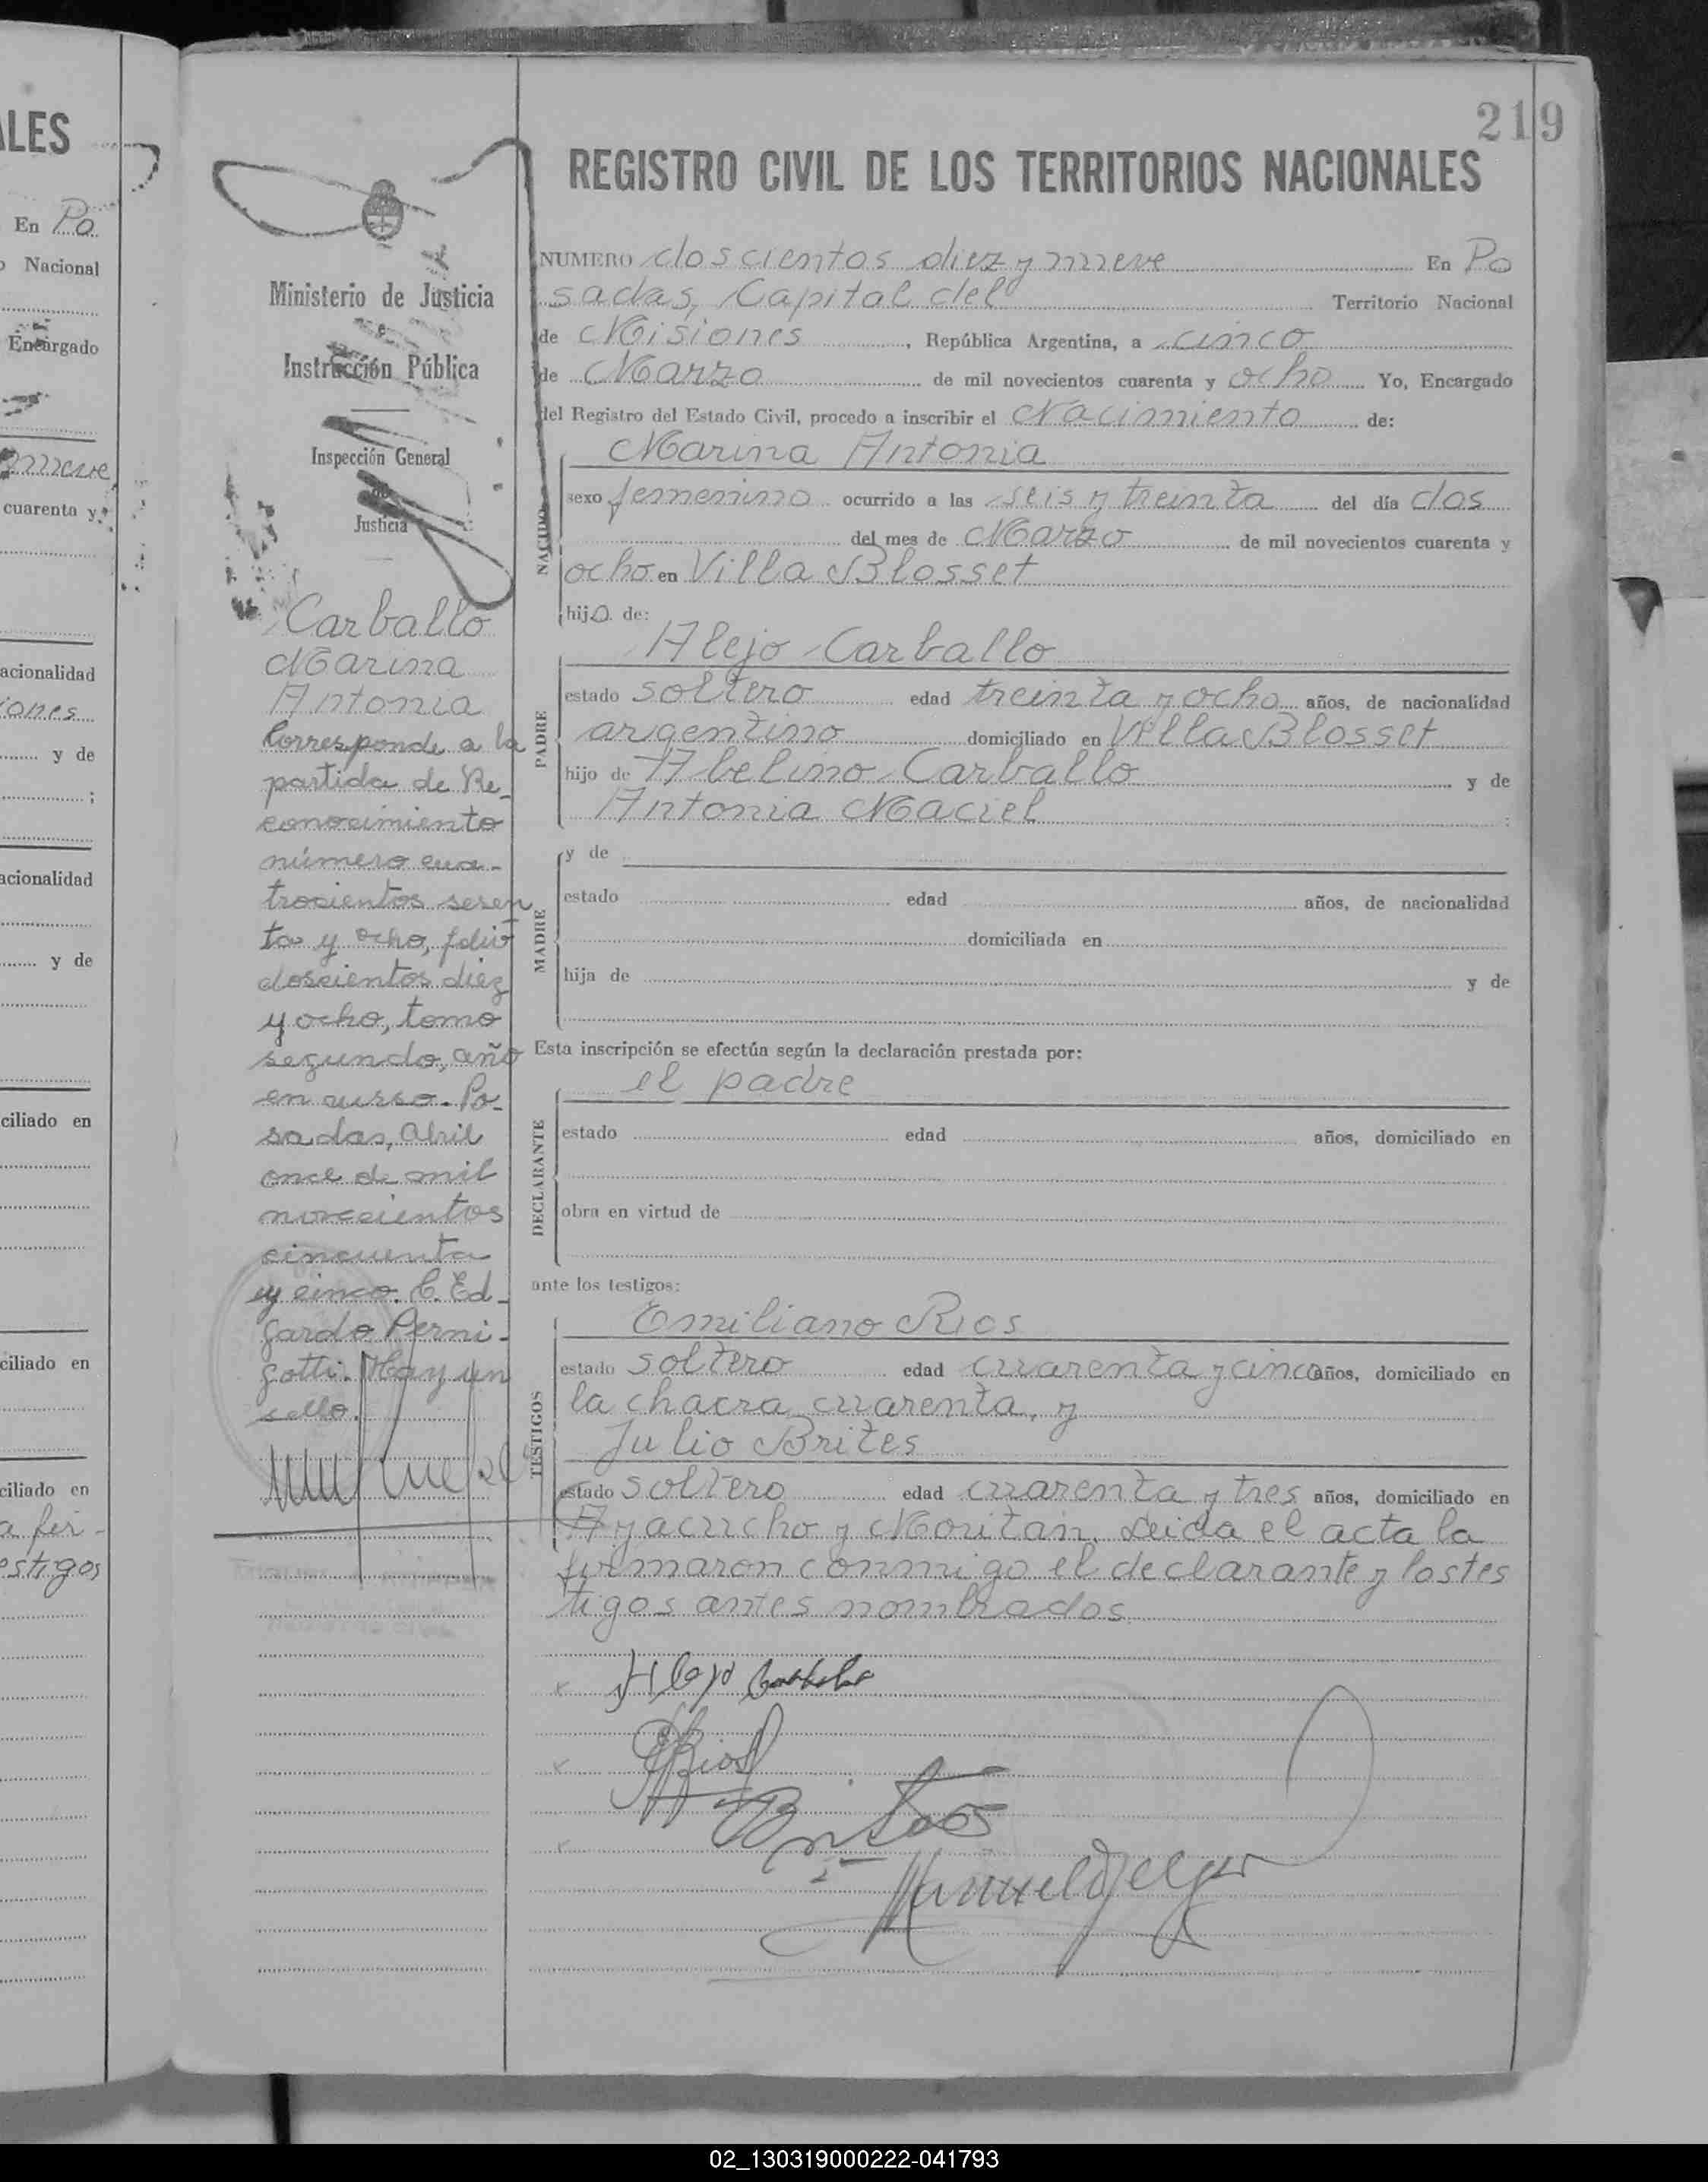 ALES
En Po
o Nacional
Encargado
nueve
cuarenta y
acionalidad
iones
y de
;
acionalidad
y de
ciliado en
ciliado en
ciliado en
a fir-
estigos
219
Ministerio de Justicia
e
Instrucción Pública
Inspección General
de
Justicia
Carballo
Marina
Antonia
Corresponde a la
partida de Re-
conocimiento
número cua-
trocientos seten
ta y ocho, folio
doscientos diez
y ocho, tomo
segundo, año
en curso. Po-
sadas, Abril
once de mil
novecientos
cincuenta
y cinco. C. Ed-
gardo Perni-
gotti. Hay un
sello.
REGISTRO CIVIL DE LOS TERRITORIOS NACIONALES
NUMERO doscientos diez y nueve En Po
sadas, Capital del Territorio Nacional
de Misiones, República Argentina, a cinco
de Marzo de mil novecientos cuarenta y ocho Yo, Encargado
del Registro del Estado Civil, procedo a inscribir el Nacimiento de:
NACIDO
Marina Antonia
sexo femenino ocurrido a las seis y treinta del día dos
del mes de Marzo de mil novecientos cuarenta y
ocho en Villa Blosset
hija de:
PADRE
Alejo Carballo
estado soltero edad treinta y ocho años, de nacionalidad
argentino domiciliado en Villa Blosset
hijo de Abelino Carballo y de
Antonia Maciel ;
MADRE
y de
estado edad años, de nacionalidad
domiciliada en
hija de y de
Esta inscripción se efectúa según la declaración prestada por:
DECLARANTE
el padre
estado edad años, domiciliado en
obra en virtud de
ante los testigos:
TESTIGOS
Emiliano Rios
estado soltero edad cuarenta y cinco años, domiciliado en
la chacra cuarenta, y
Julio Brites
estado soltero edad cuarenta y tres años, domiciliado en
Ayacucho y Moritan. Leida el acta la
firmaron conmigo el declarante y los tes
tigos antes nombrados
Alejo Carballo
E Rios
Brites
02_130319000222-041793